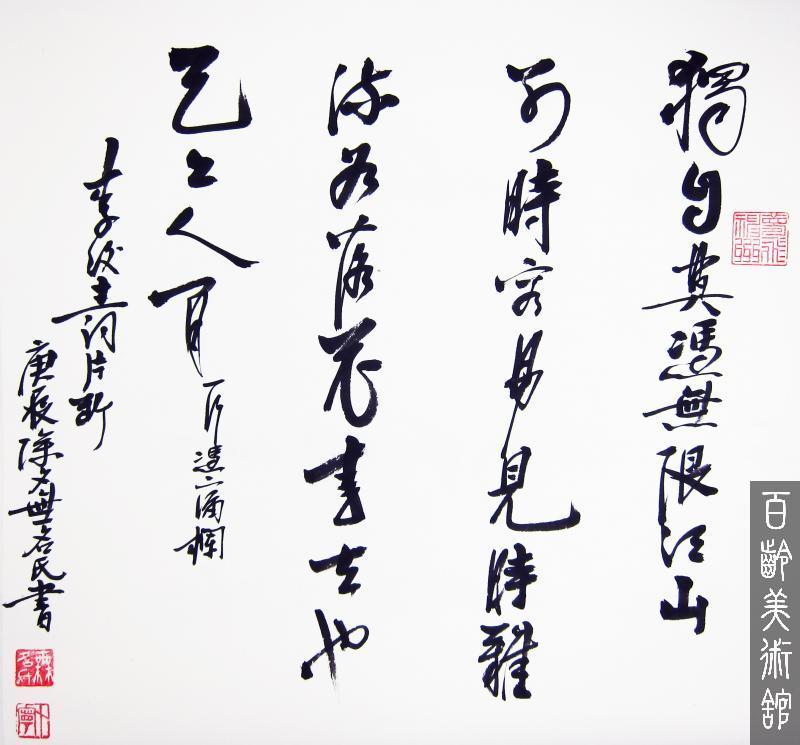 獨自莫憑無限江山
別時容易見時難
流水落花春去也
天上人間
憑下漏欄
李後主詞片斷
庚辰除夕無名氏書
百齡美術舘